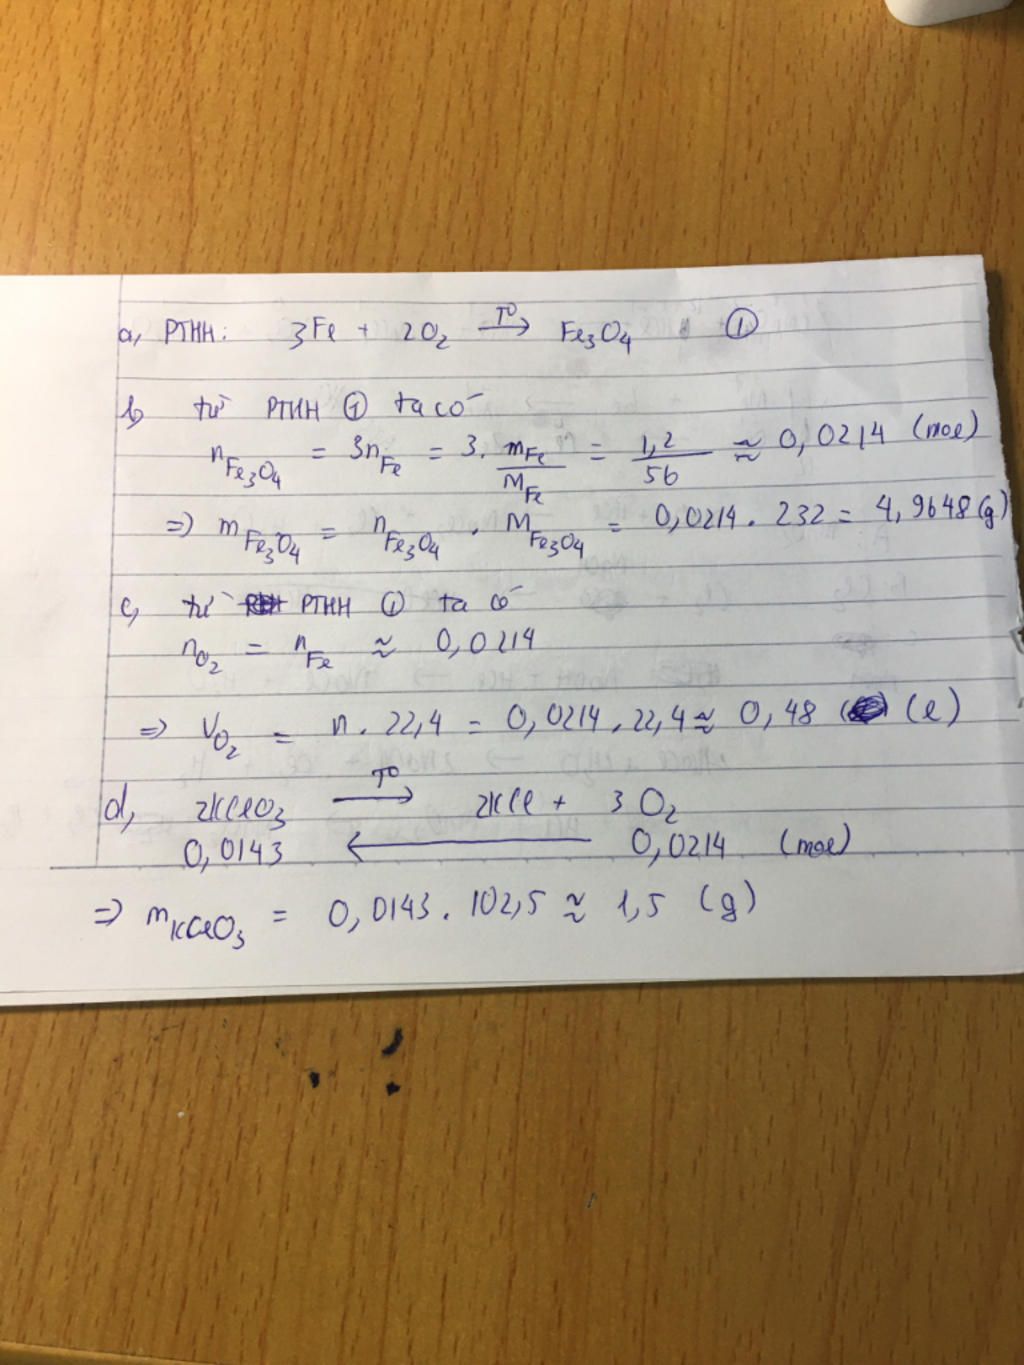 a, PTHH: 3Fe + 2O₂ —T⁰→ Fe₃O₄ ①
b, từ PTHH ① ta có
n_Fe₃O₄ = 3n_Fe = 3 . m_Fe/M_Fe = 1,2/56 ≈ 0,0214 (mol)
=> m_Fe₃O₄ = n_Fe₃O₄ . M_Fe₃O₄ = 0,0214 . 232 = 4,9648 (g)
c, từ PTHH ① ta có
n_O₂ = n_Fe ≈ 0,0214
=> V_O₂ = n . 22,4 = 0,0214 . 22,4 ≈ 0,48 (l)
d, 2KClO₃ —T⁰→ 2KCl + 3O₂
0,0143 ← 0,0214 (mol)
=> m_KClO₃ = 0,0143 . 102,5 ≈ 1,5 (g)